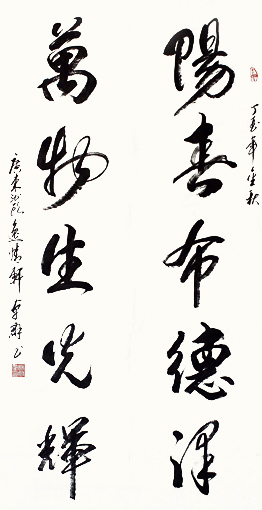 陽春布德澤
丁亥年金秋
萬物生光輝